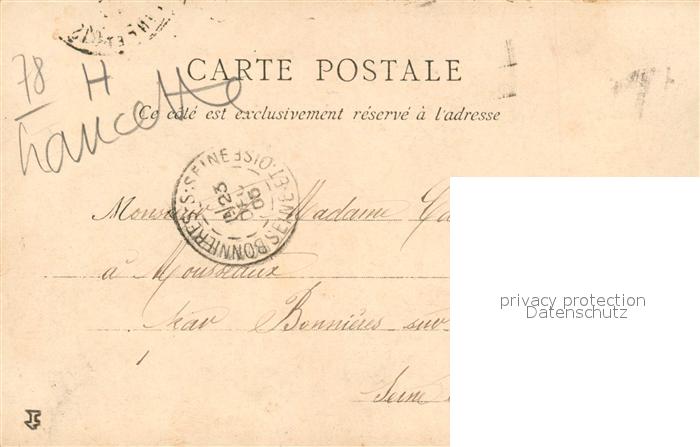 CARTE POSTALE
Ce côté est exclusivement réservé à l'adresse
78
H
BONNIERES-S-SEINE
SEINE-ET-OISE
23
05
Monsieur Madame
à Mousseaux
par Bonnières-sur
Seine
privacy protection
Datenschutz